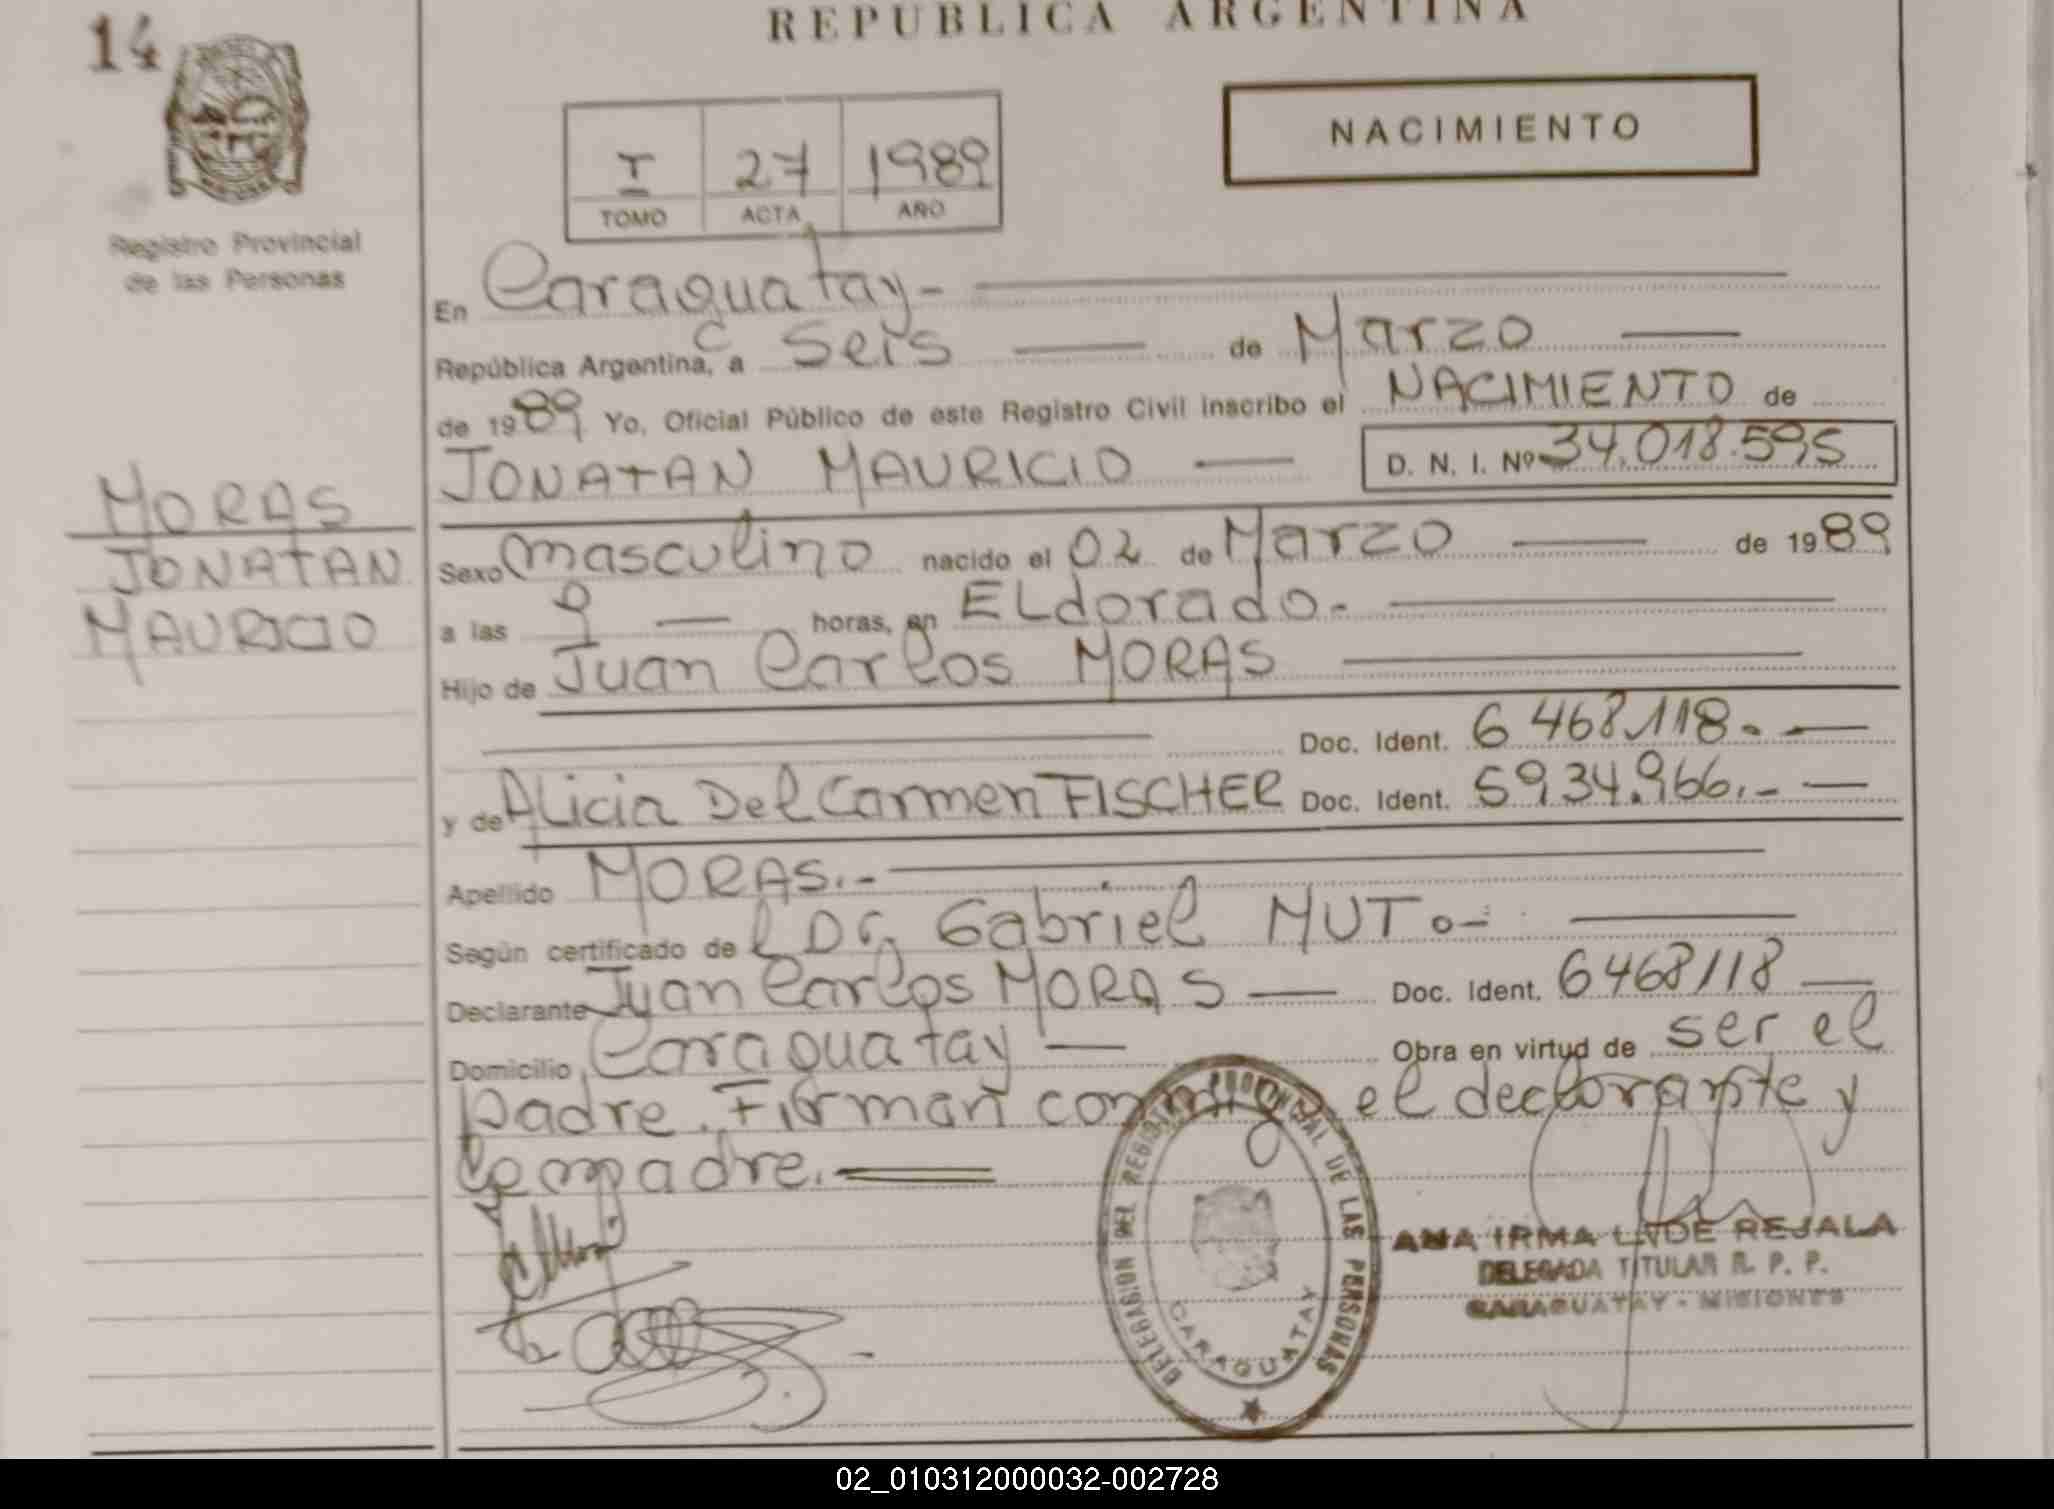 14
REPUBLICA ARGENTINA
NACIMIENTO
I 27 1989
TOMO ACTA AÑO
Registro Provincial
de las Personas
En Caraguatay-
República Argentina, a Seis de Marzo
de 1989 Yo, Oficial Público de este Registro Civil inscribo el NACIMIENTO de
JONATAN MAURICIO D. N. I. Nº 34.018.595
MORAS
JONATAN
MAURICIO
Sexo masculino nacido el 02 de Marzo de 1989
a las 9 horas, en ELdorado.-
Hijo de Juan Carlos MORAS
Doc. Ident. 6468.118.-
y de Alicia Del Carmen FISCHER Doc. Ident. 5934.966.-
Apellido MORAS.-
Según certificado de l Dr. Gabriel MUTo-
Declarante Juan Carlos MORAS Doc. Ident. 6468118
Domicilio Caraguatay Obra en virtud de ser el
padre. Firman conmigo el declarante y
la madre.
DELEGACION DEL REGISTRO PROVINCIAL DE LAS PERSONAS
CARAGUATAY
ANA IRMA LNDE REJALA
DELEGADA TITULAR R. P. P.
CARAGUATAY - MISIONES
02_010312000032-002728